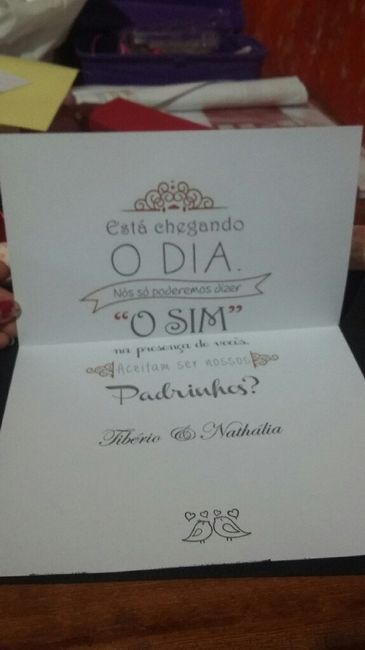 Está chegando
O DIA.
Nós só poderemos dizer
“O SIM”
na presença de vocês.
Aceitam ser nossos
Padrinhos?
Tibério & Nathália